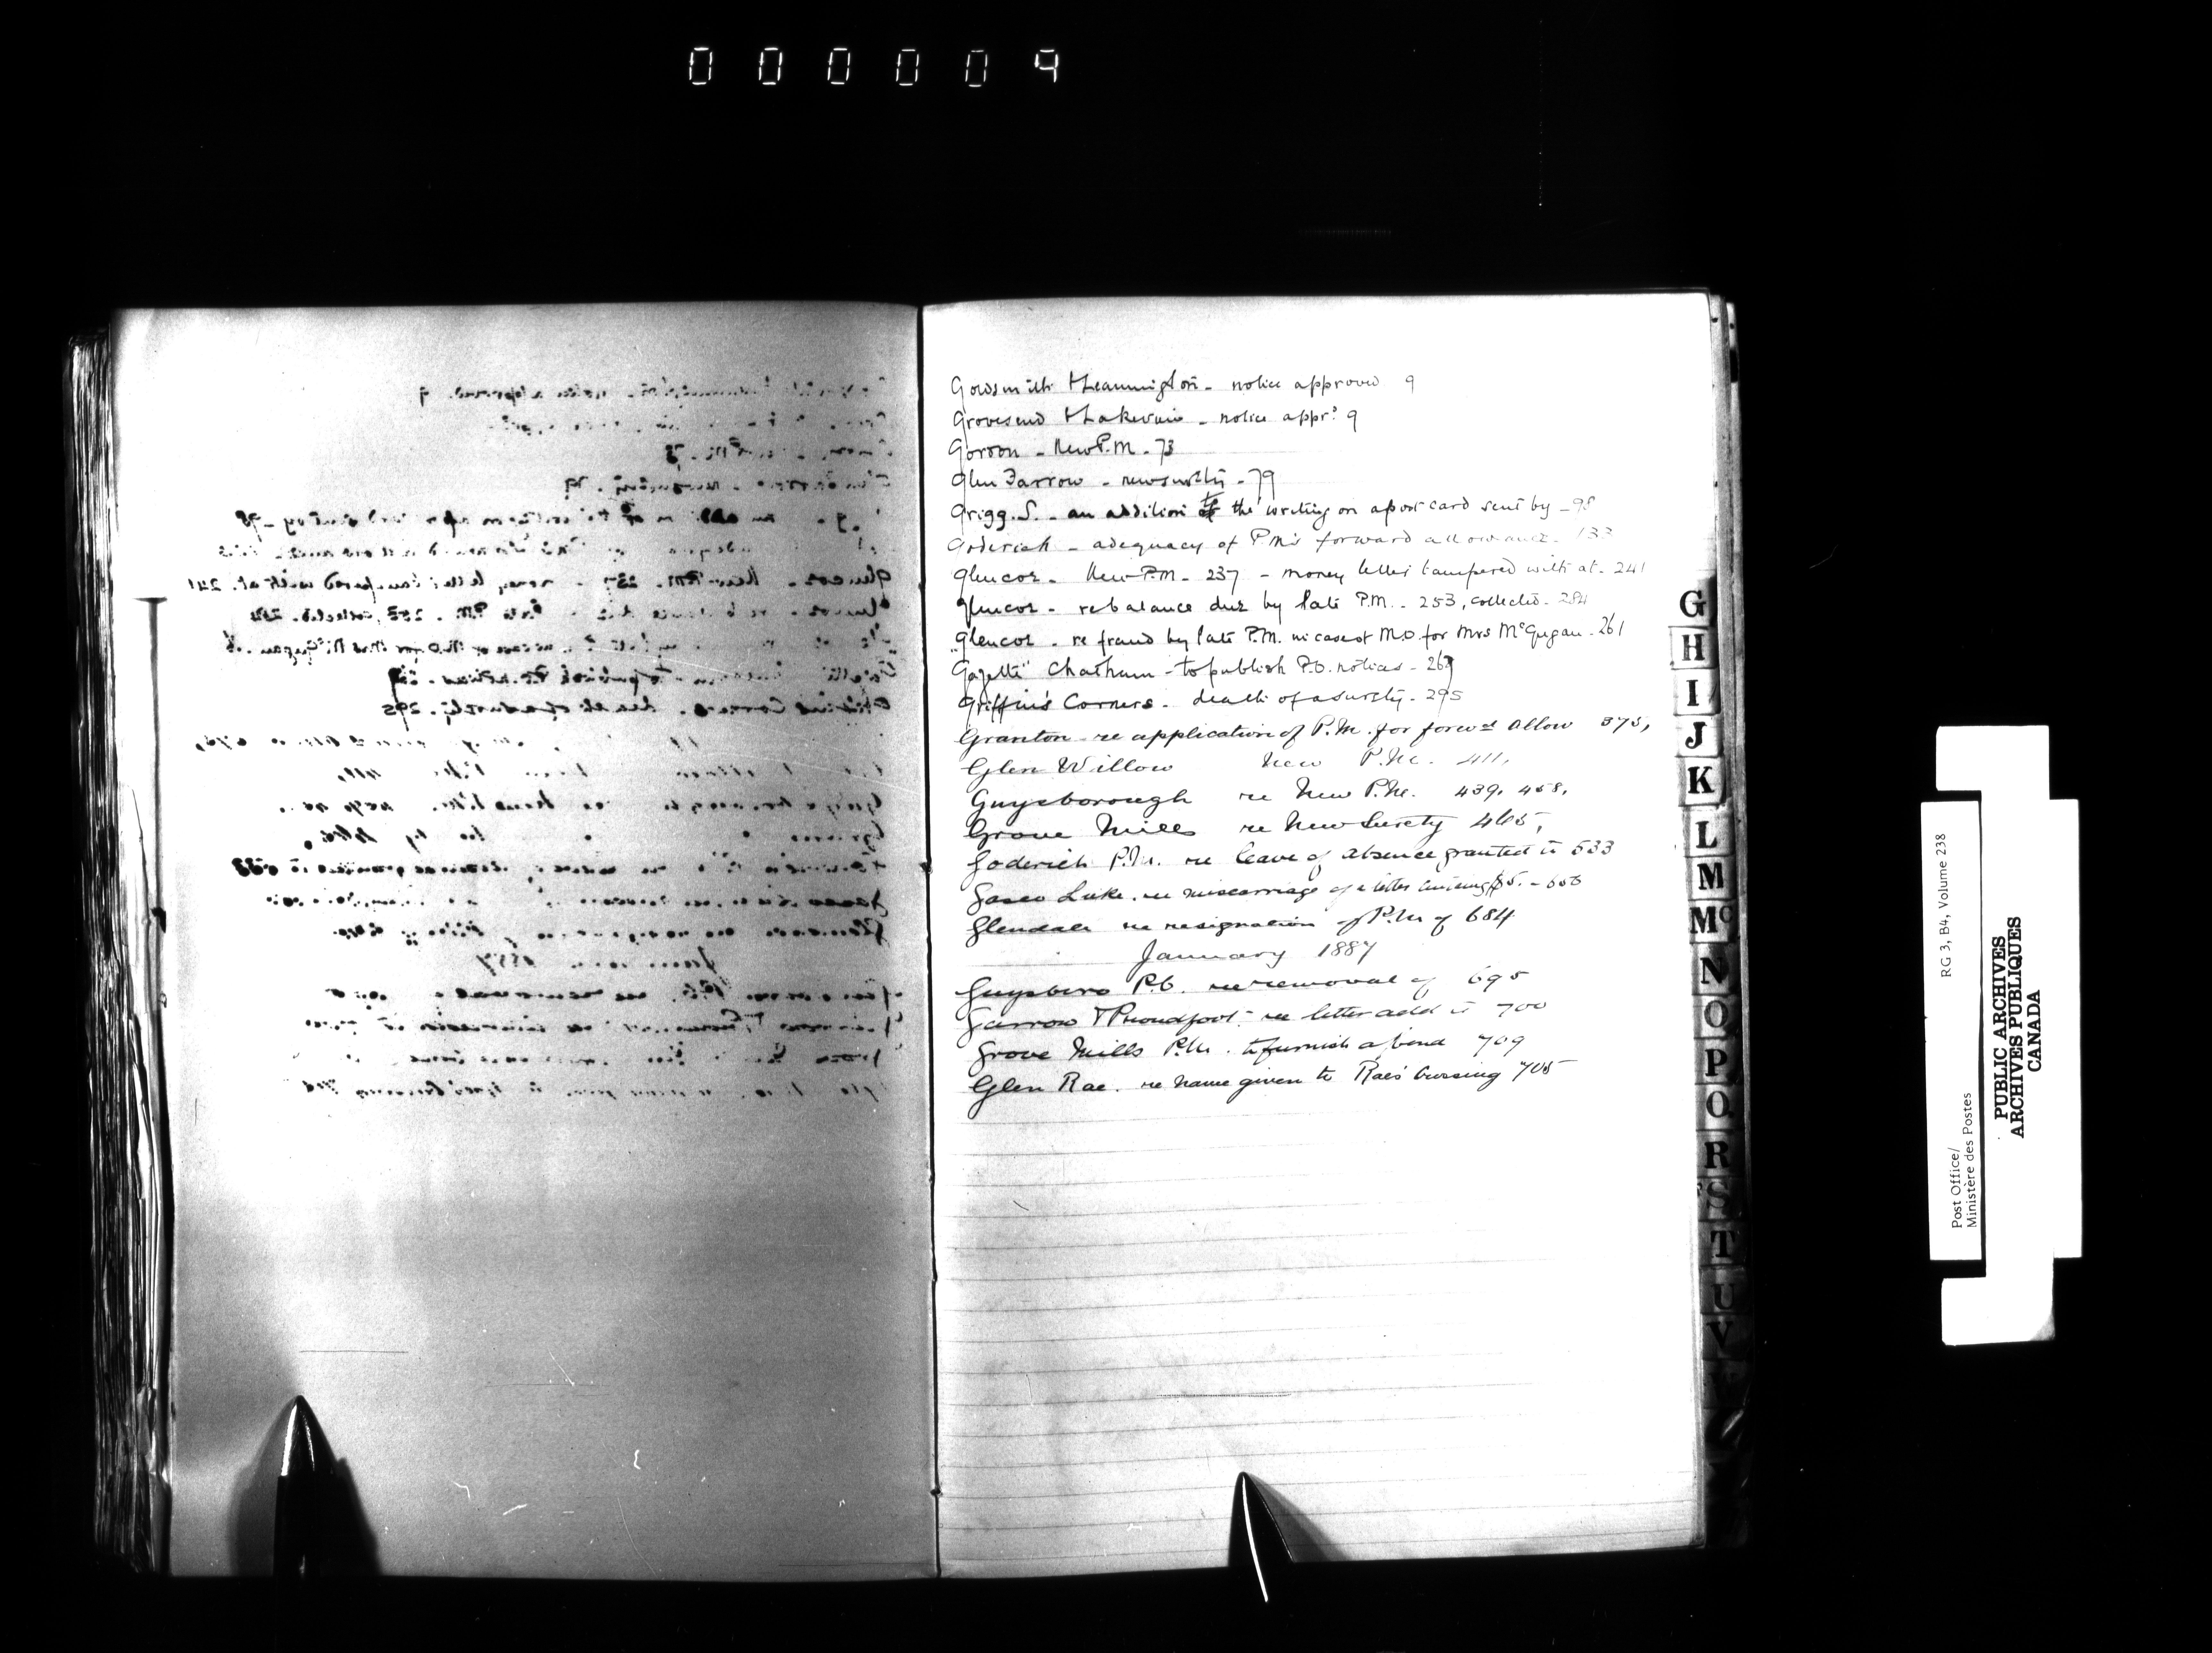 000009
Gowsmith & Leamington - notice approved 9
Grovesend & Lakeview - notice appr'd 9
Gordon - New P.M. - 73
Glen Farrow - new surety - 79
Grigg. S. - an addition to the writing on a post card sent by - 98
Goderich - adequacy of P.M's forward allowance - 133
Glencoe - New P.M. - 237 - money letter tampered with at - 241
Glencoe - re balance due by late P.M. - 253, collected - 284
Glencoe - re fraud by late P.M. in case of M.O. for Mrs McGugan - 261
"Gazette" Chatham - to publish P.O. notices - 269
Griffin's Corners - death of a surety - 295
Granton - re application of P.M. for forwd allow 373,
Glen Willow New P.M. 411,
Guysborough re New P.M. 439, 458,
Grove Mills re New Surety 465,
Goderich P.M. re leave of absence granted to 533
Luke re miscarriage of a letter $5. -
Glendale re resignation of P.M. of 684
January 1887
Guysboro P.O. re removal of 695
Garrow & Proudfoot re letter add to 700
Grove Mills P.M. to furnish a bond 709
Glen Rae. re name given to Rae's Crossing 705
G
H
I
J
K
L
M
Mc
N
O
P
Q
R
S
T
U
V
Post Office/
Ministère des Postes
RG 3, B4, Volume 238
PUBLIC ARCHIVES
ARCHIVES PUBLIQUES
CANADA